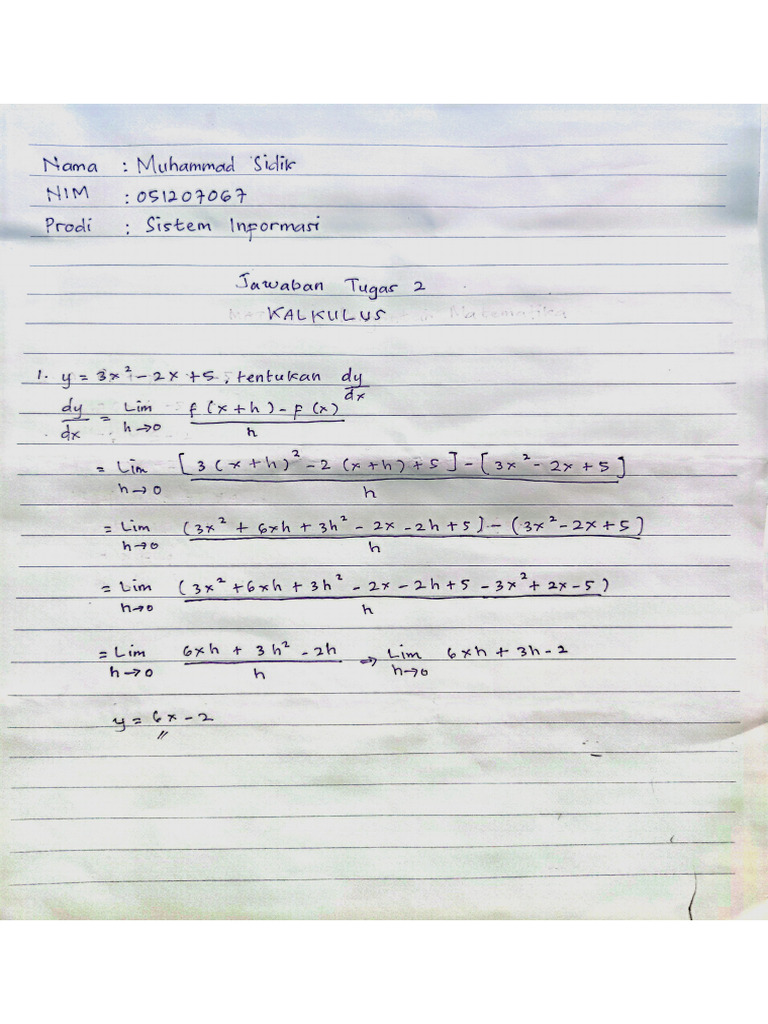 Nama : Muhammad Sidik
NIM : 051207067
Prodi : Sistem Informasi
Jawaban Tugas 2
KALKULUS Matematika
1. y = 3x² - 2x + 5, tentukan dy/dx
dy/dx = Lim h→0 f(x+h) - f(x) / h
= Lim h→0 [3(x+h)² - 2(x+h) + 5] - [3x² - 2x + 5] / h
= Lim h→0 (3x² + 6xh + 3h² - 2x - 2h + 5] - (3x² - 2x + 5) / h
= Lim h→0 (3x² + 6xh + 3h² - 2x - 2h + 5 - 3x² + 2x - 5) / h
= Lim h→0 6xh + 3h² - 2h / h → Lim h→0 6xh + 3h - 2
y = 6x - 2